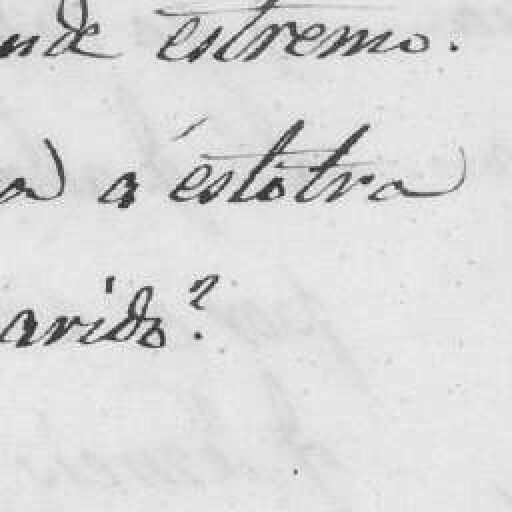 nde estremo.
a) a éstotra
arido?